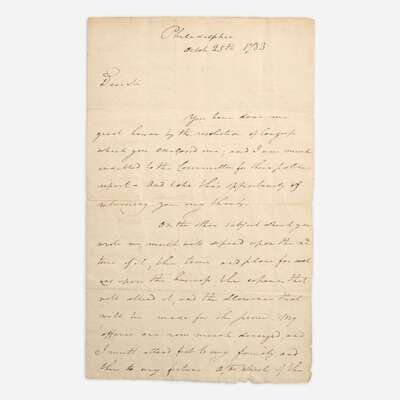 Philadelphia
Octob 25th 1783
Dear Sir
You have done me
great honour by the resolution of Congress
which you enclosed me, and I am much
indebted to the Committee for their polite
report - and take this opportunity of
returning you my thanks.
On the other subject about you
wrote me, much will depend upon the na
ture of it, the time and place for
upon the business the expence that
will attend it, and the allowance that
will be made for the same. My
affairs are now much deranged, and
I must attend first to my family, and
then to my future. A of the